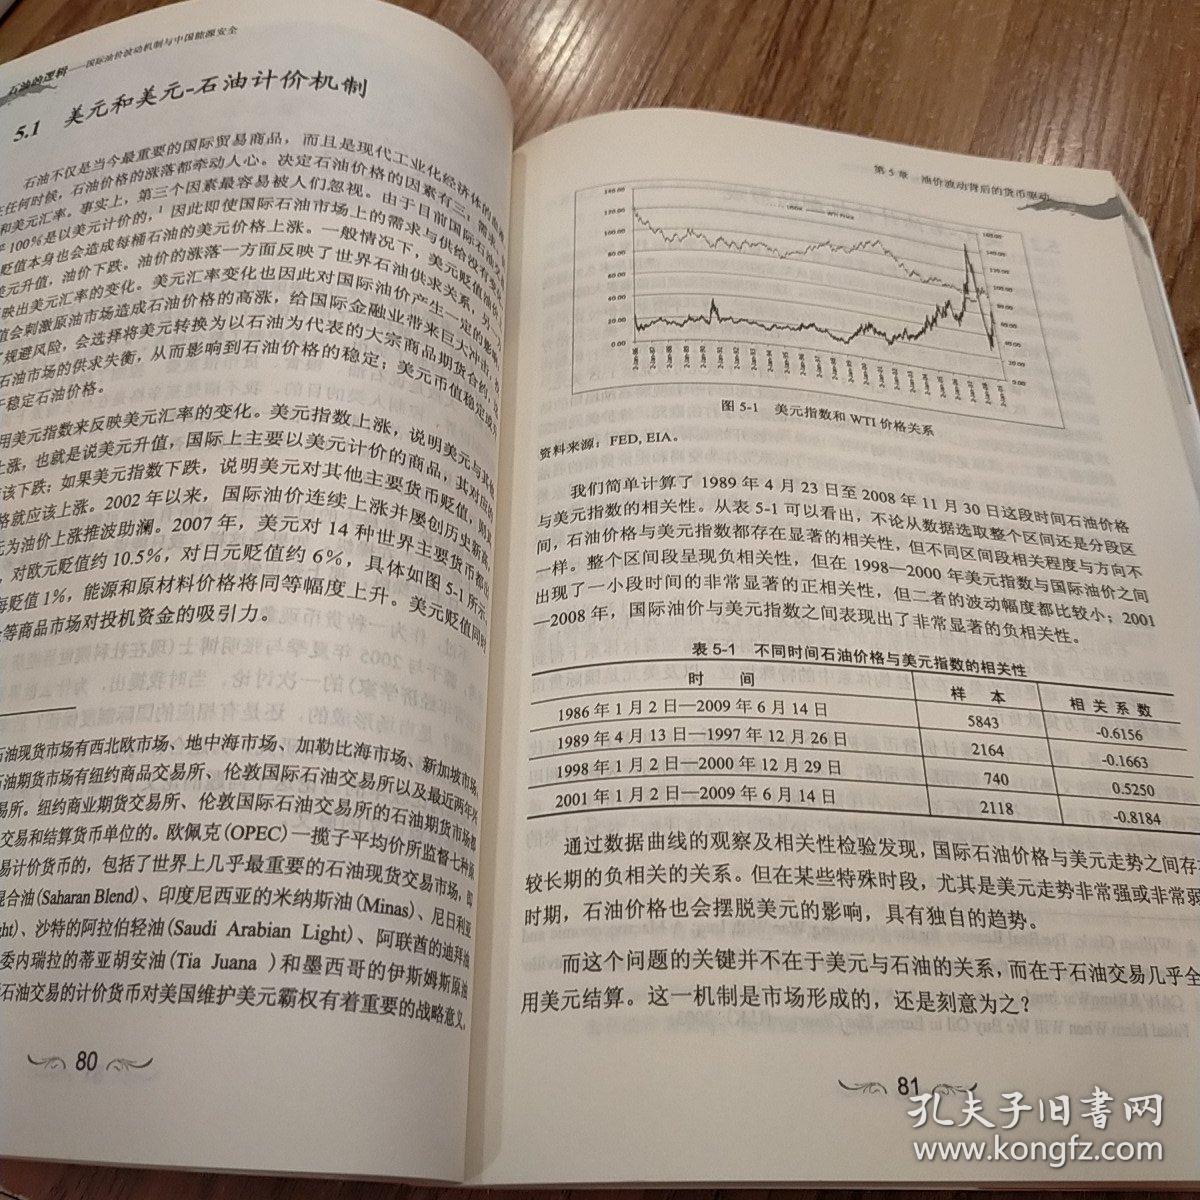 石油的逻辑——国际油价波动机制与中国能源安全
5.1 美元和美元-石油计价机制
石油不仅是当今最重要的国际贸易商品，而且是现代工业化经济体的
在任何时候，石油价格的涨落都牵动人心。决定石油价格的因素有三，需求
和美元汇率。事实上，第三个因素最容易被人们忽视。由于目前国际石油交
100%是以美元计价的，1 因此即使国际石油市场上的需求与供给没有变
贬值本身也会造成每桶石油的美元价格上涨。一般情况下，美元贬值油价上
美元升值，油价下跌。油价的涨落一方面反映了世界石油供求关系，另一方
映出美元汇率的变化。美元汇率变化也因此对国际油价产生一定的影响，
值会刺激原油市场造成石油价格的高涨，给国际金融业带来巨大冲击，
规避风险，会选择将美元转换为以石油为代表的大宗商品期货合约，
石油市场的供求失衡，从而影响到石油价格的稳定；美元币值稳定
于稳定石油价格。
用美元指数来反映美元汇率的变化。美元指数上涨，说明美元与其他
上涨，也就是说美元升值，国际上主要以美元计价的商品，其对应的
该下跌；如果美元指数下跌，说明美元对其他主要货币贬值，则
格就应该上涨。2002 年以来，国际油价连续上涨并屡创历史新高，
元为油价上涨推波助澜。2007 年，美元对 14 种世界主要货币都出
，对欧元贬值约 10.5%，对日元贬值约 6%，具体如图 5-1 所示，
每贬值 1%，能源和原材料价格将同等幅度上升。美元贬值同时
等商品市场对投机资金的吸引力。
石油现货市场有西北欧市场、地中海市场、加勒比海市场、新加坡市场
石油期货市场有纽约商品交易所、伦敦国际石油交易所以及最近两年
易所。纽约商业期货交易所、伦敦国际石油交易所的石油期货市场都
交易和结算货币单位的。欧佩克(OPEC)一揽子平均价所监督七种原
易计价货币的，包括了世界上几乎最重要的石油现货交易市场，即
混合油(Saharan Blend)、印度尼西亚的米纳斯油(Minas)、尼日利亚
ght)、沙特的阿拉伯轻油(Saudi Arabian Light)、阿联酋的迪拜油
委内瑞拉的蒂亚胡安油(Tia Juana )和墨西哥的伊斯姆斯原油
石油交易的计价货币对美国维护美元霸权有着重要的战略意义
80
第 5 章 油价波动背后的货币驱动
140.00
120.00
100.00
80.00
60.00
40.00
20.00
0.00
160.00
140.00
120.00
100.00
80.00
60.00
40.00
20.00
0.00
图 5-1 美元指数和 WTI 价格关系
资料来源：FED, EIA。
我们简单计算了 1989 年 4 月 23 日至 2008 年 11 月 30 日这段时间石油价格
与美元指数的相关性。从表 5-1 可以看出，不论从数据选取整个区间还是分段区
间，石油价格与美元指数都存在显著的相关性，但不同区间段相关程度与方向不
一样。整个区间段呈现负相关性，但在 1998—2000 年美元指数与国际油价之间
出现了一小段时间的非常显著的正相关性，但二者的波动幅度都比较小；2001
—2008 年，国际油价与美元指数之间表现出了非常显著的负相关性。
表 5-1 不同时间石油价格与美元指数的相关性
时 间 样 本 相 关 系 数
1986 年 1 月 2 日—2009 年 6 月 14 日 5843 -0.6156
1989 年 4 月 13 日—1997 年 12 月 26 日 2164 -0.1663
1998 年 1 月 2 日—2000 年 12 月 29 日 740 0.5250
2001 年 1 月 2 日—2009 年 6 月 14 日 2118 -0.8184
通过数据曲线的观察及相关性检验发现，国际石油价格与美元走势之间存在
较长期的负相关的关系。但在某些特殊时段，尤其是美元走势非常强或非常弱
时期，石油价格也会摆脱美元的影响，具有独自的趋势。
而这个问题的关键并不在于美元与石油的关系，而在于石油交易几乎全
用美元结算。这一机制是市场形成的，还是刻意为之？
81
孔夫子旧书网
www.kongfz.com